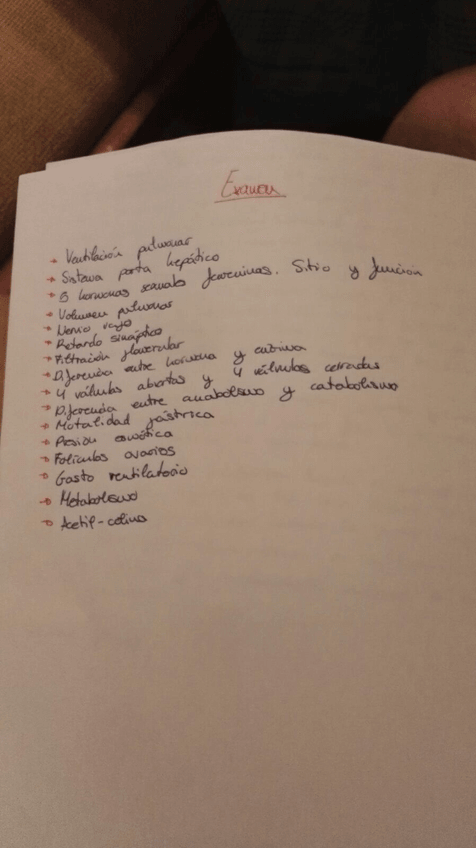 Examen
Ventilación pulmonar
Sistema porta hepático
3 hormonas sexuales femeninas. Sitio y función
Volumen pulmonar
Nervio vago
Retardo sináptico
Filtración glomerular
Diferencia entre hormona y enzima
4 válvulas abiertas y 4 válvulas cerradas
Diferencia entre anabolismo y catabolismo
Motalidad gástrica
Presión osmótica
Folículos ovarios
Gasto ventilatorio
Metabolismo
Acetil-colina